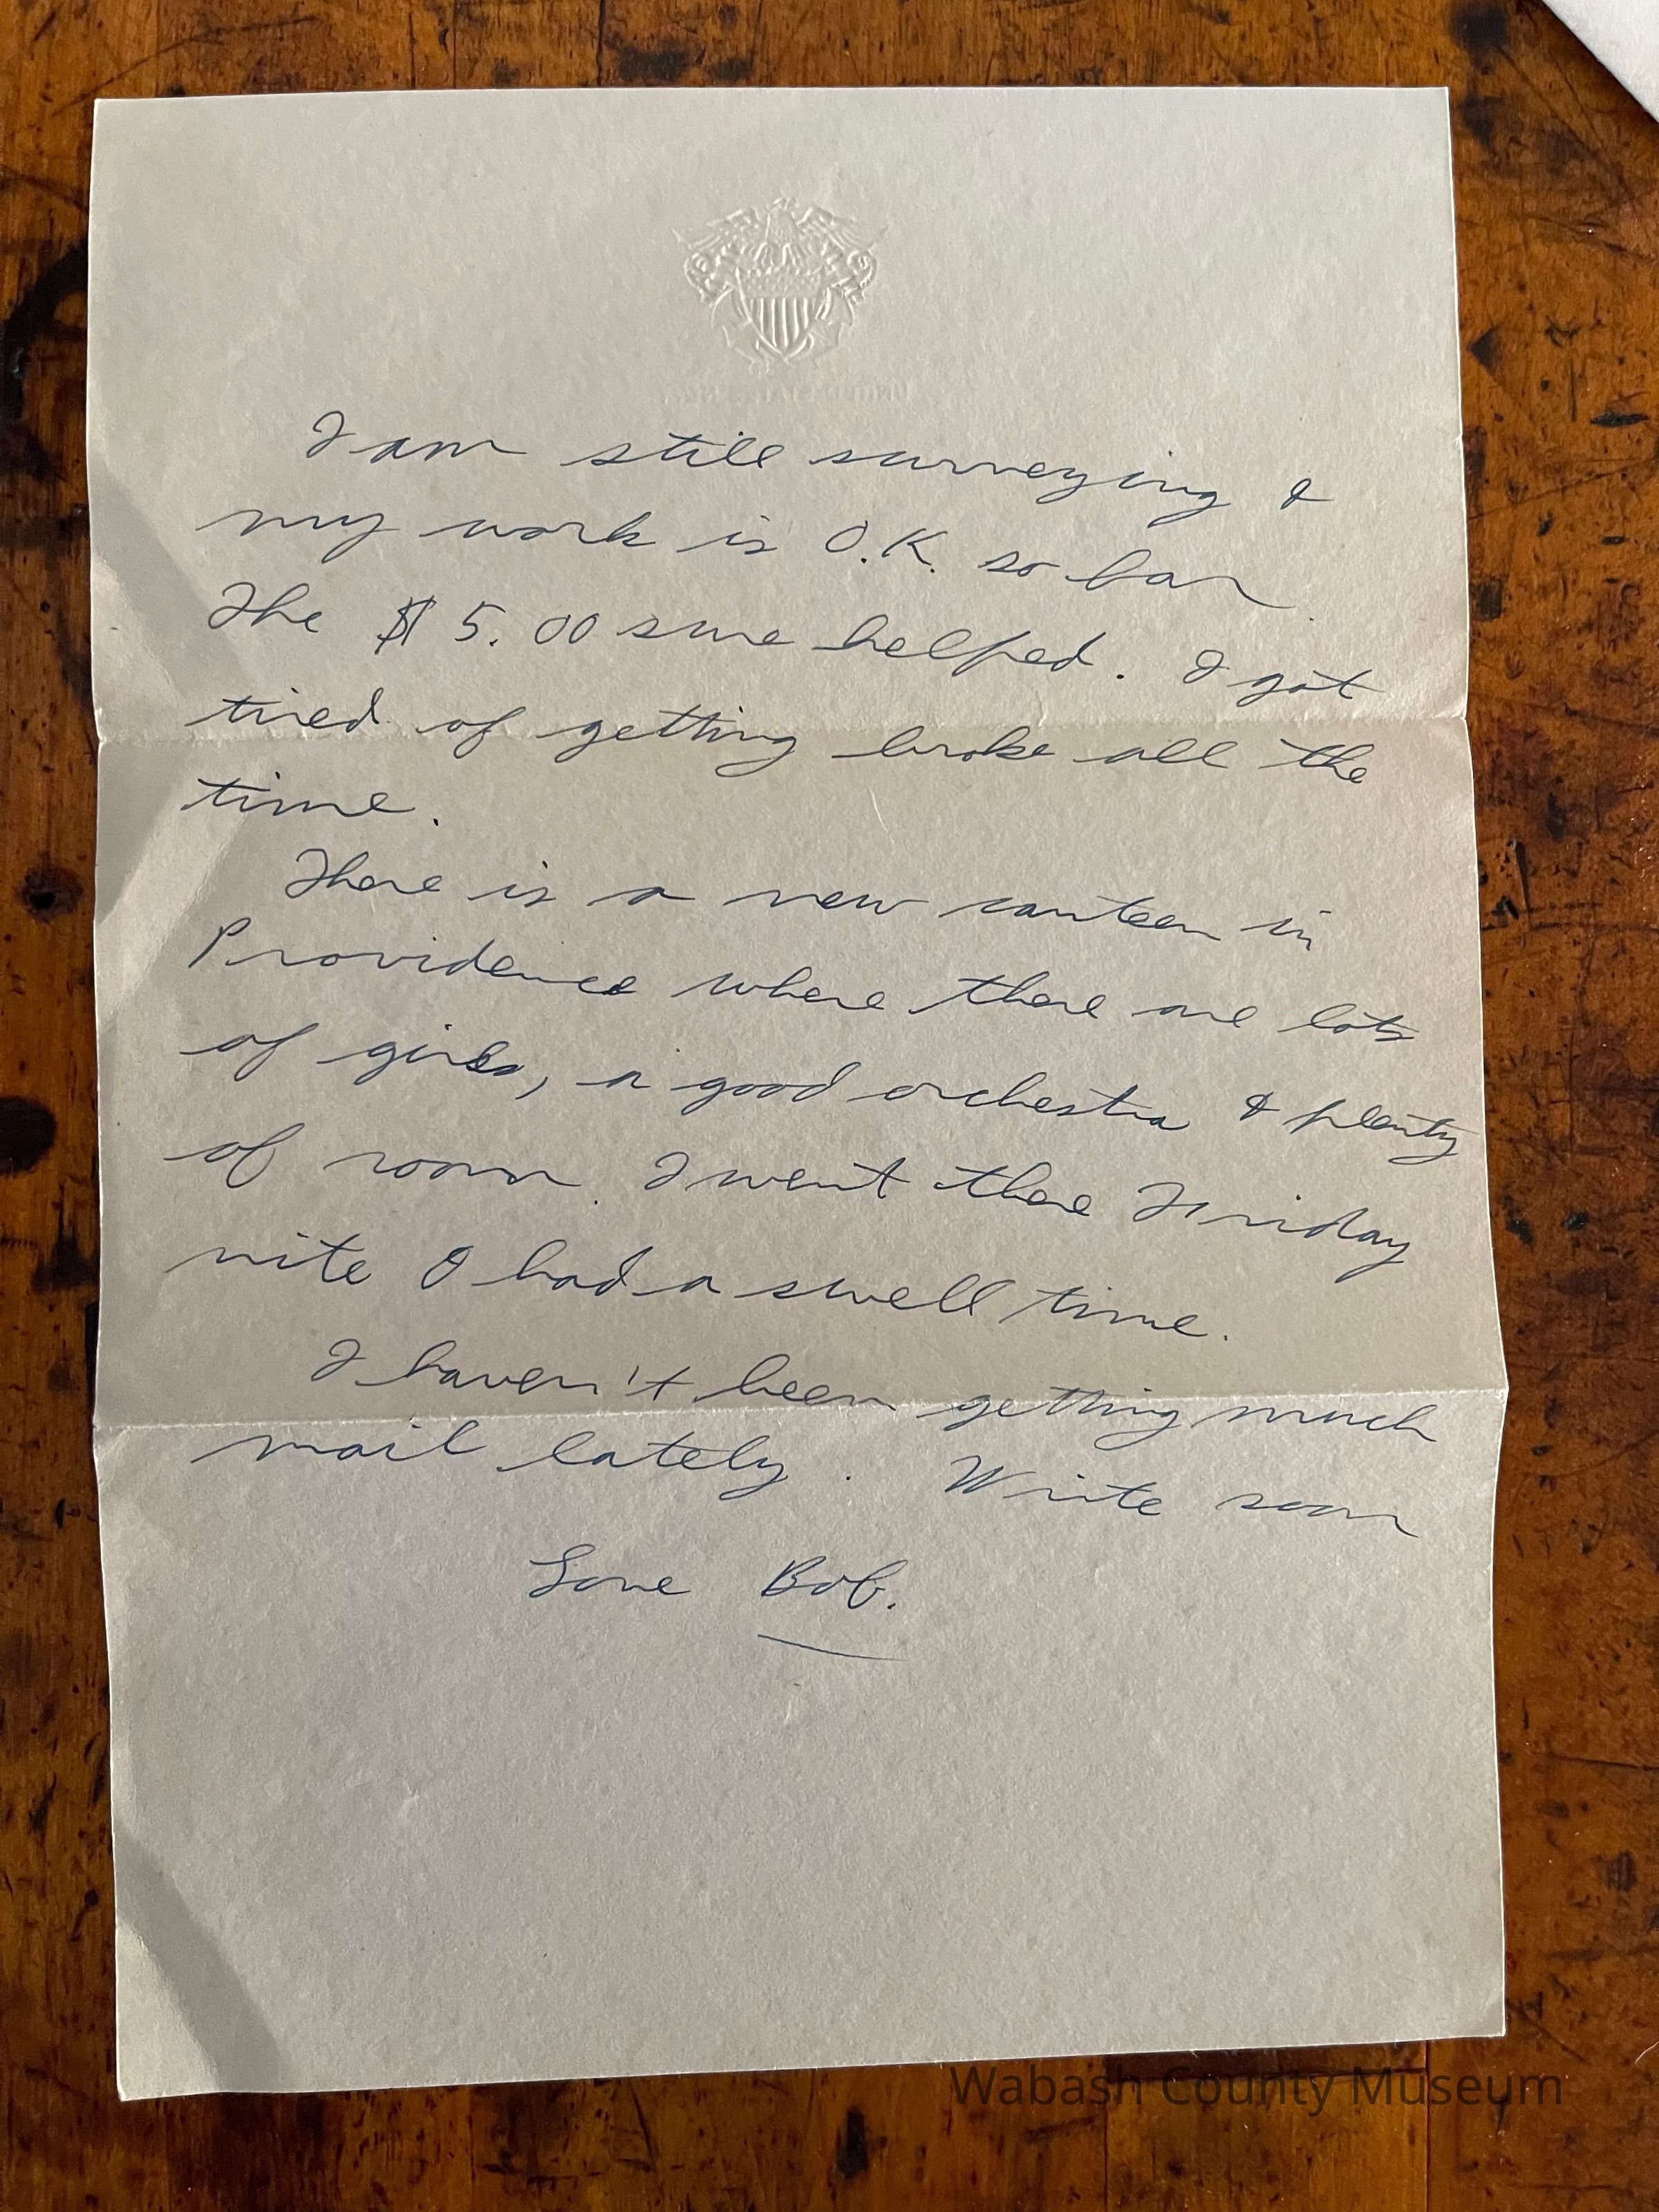 I am still surveying &
my work is O.K. so far.
The $5.00 sure helped. I got
tired of getting broke all the
time.
There is a new canteen in
Providence where there are lots
of girls, a good orchestra & plenty
of room. I went there Friday
nite & had a swell time.
I haven't been getting much
mail lately. Write soon
Love Bob.
Wabash County Museum